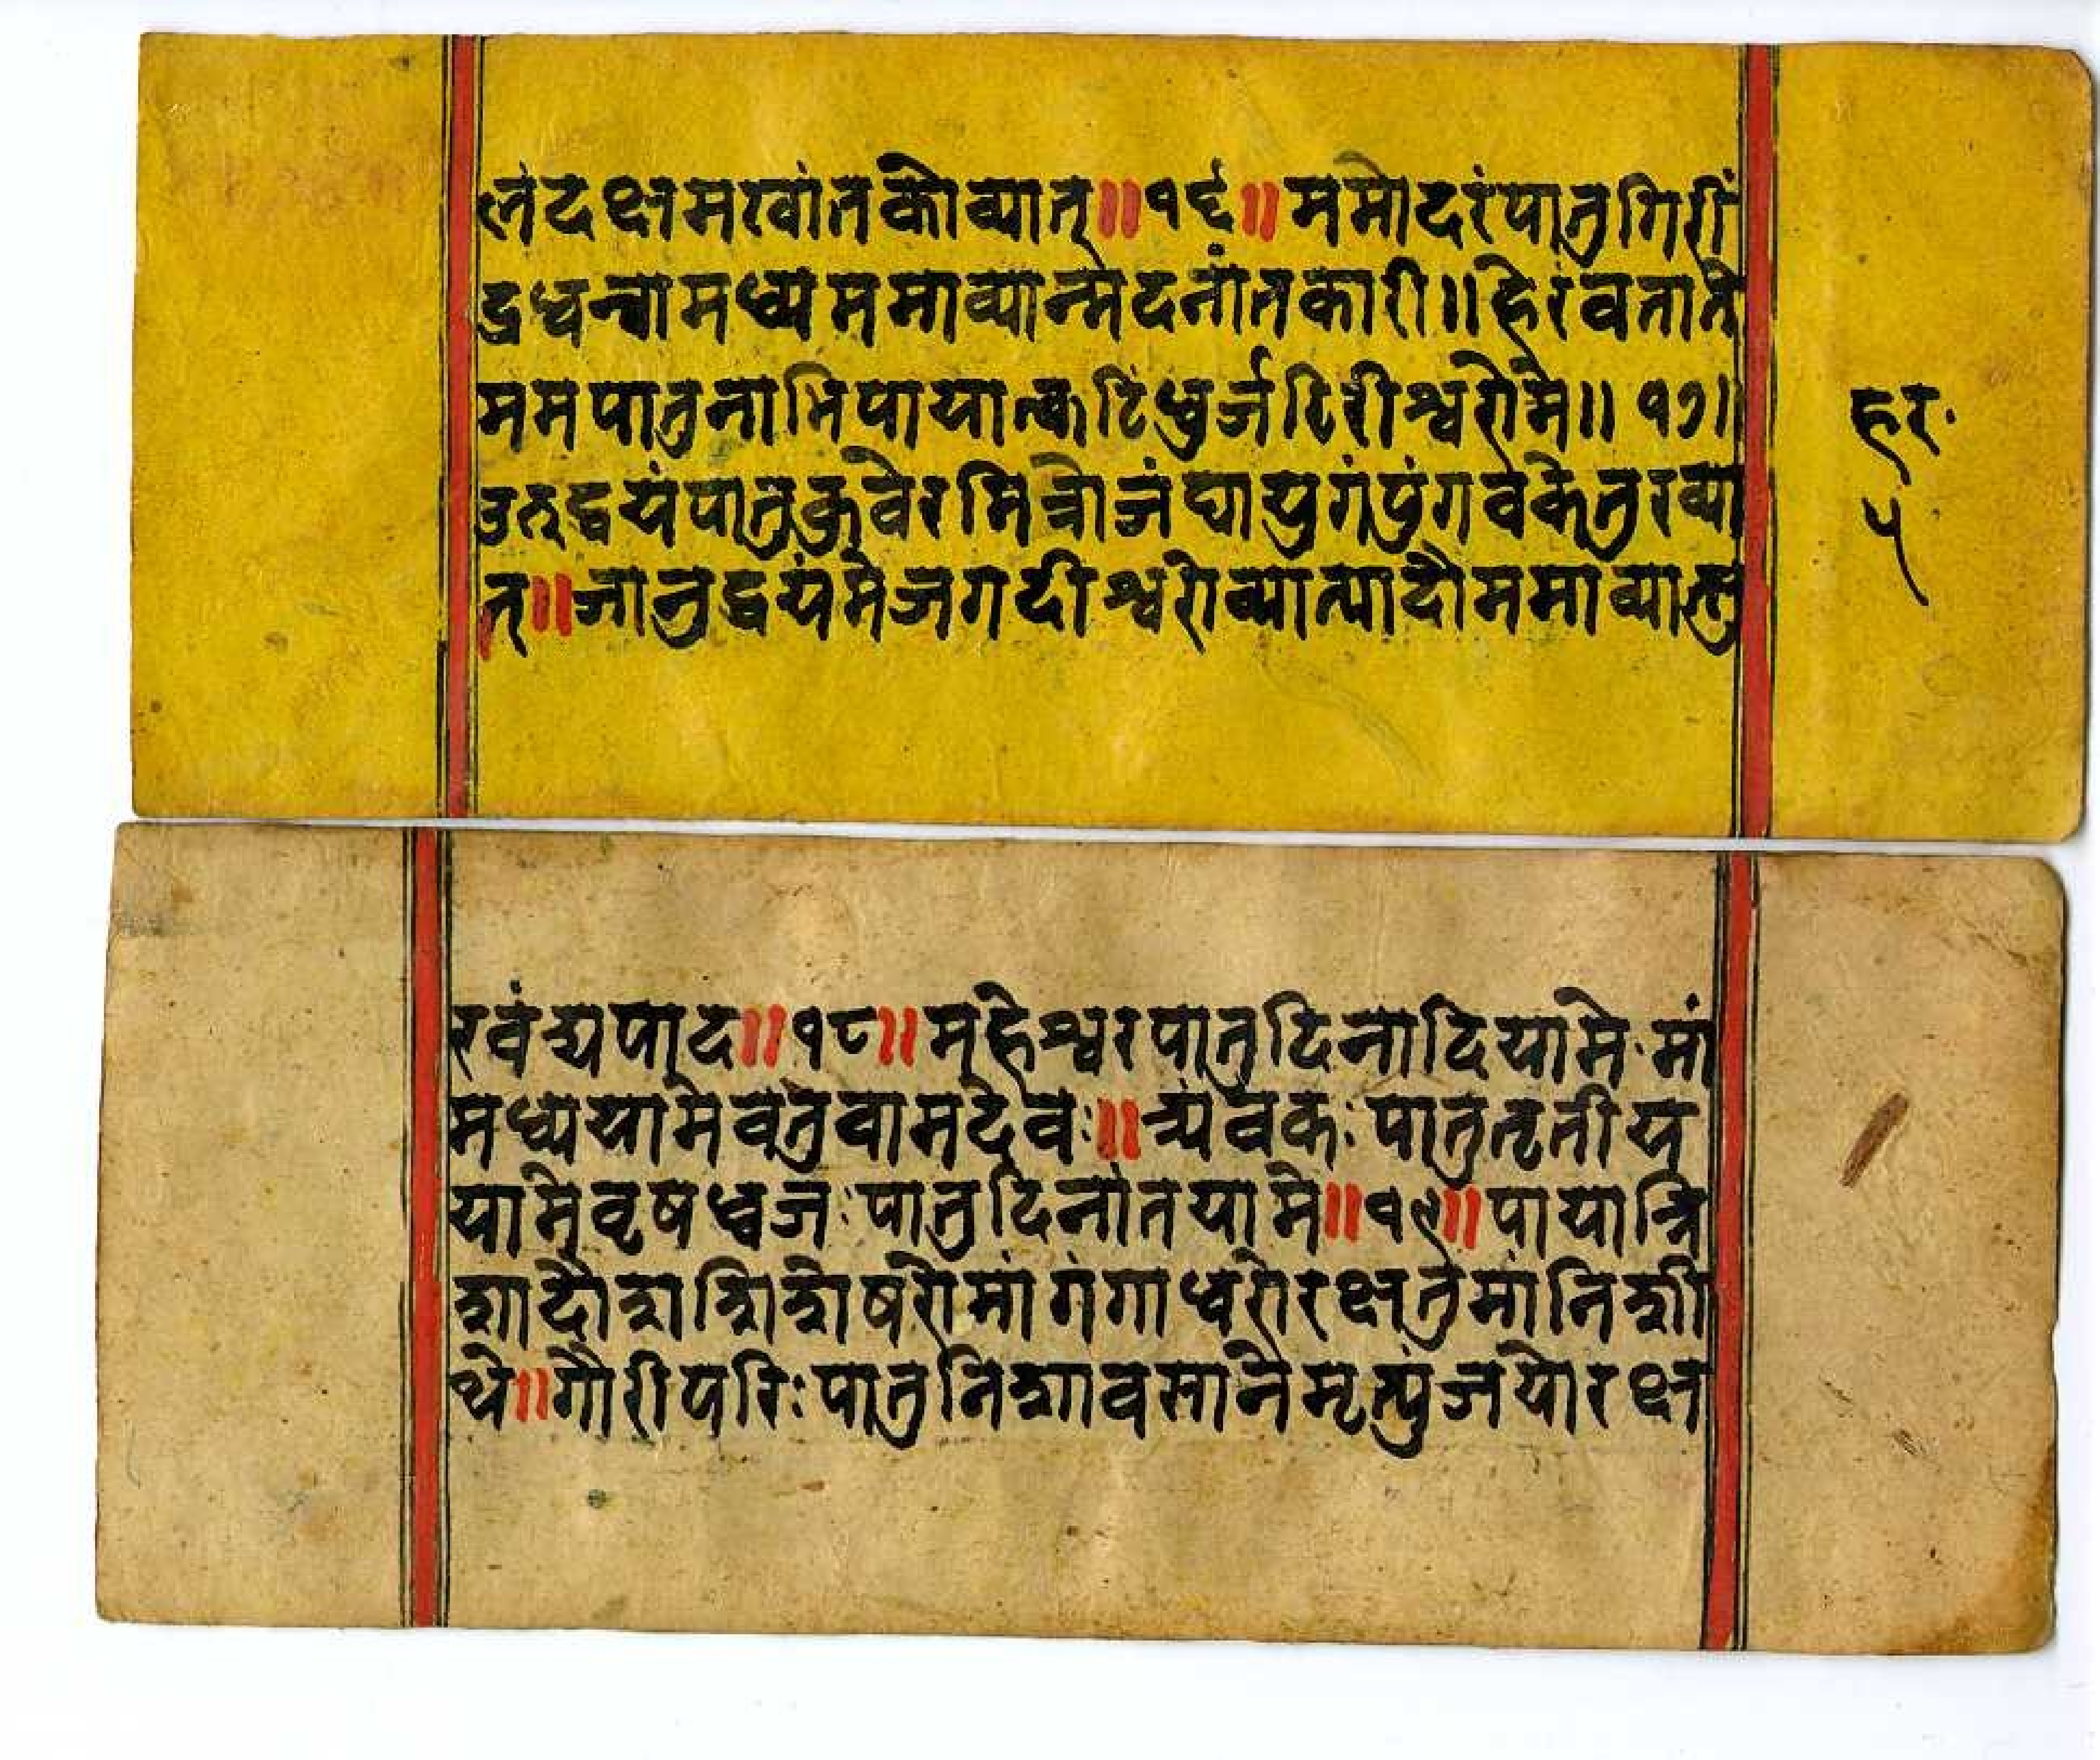 लंदक्षमखांतकोव्यात्॥१६॥ममोदरंपातुगिरीं
द्रधन्वामध्यमममाव्यान्मदनांतकारी॥हेरंवताते
ममपातुनाभिपायात्कटिधुर्जटिरीश्वरोमे॥१७॥
उरुद्वयंपातुकुवेरमित्रोजंघायुगंपुंगवकेतुरव्या
त्॥जानुद्वयंमेजगदीश्वरोव्यात्पादौममाव्यात्सु
हर.
५
रवंद्यपाद॥१८॥महेश्वरपातुदिनादियामे.मां
मध्ययामेवतुवामदेवः॥त्र्यंवकःपातुतृतीय
यामेवृषध्वजःपातुदिनांतयामे॥१९॥पायान्नि
शादौशशिशेषरोमांगंगाधरोरक्षतुमांनिशी
थे॥गौरीपरिःपातुनिशावसानेमृत्युंजयोरक्ष